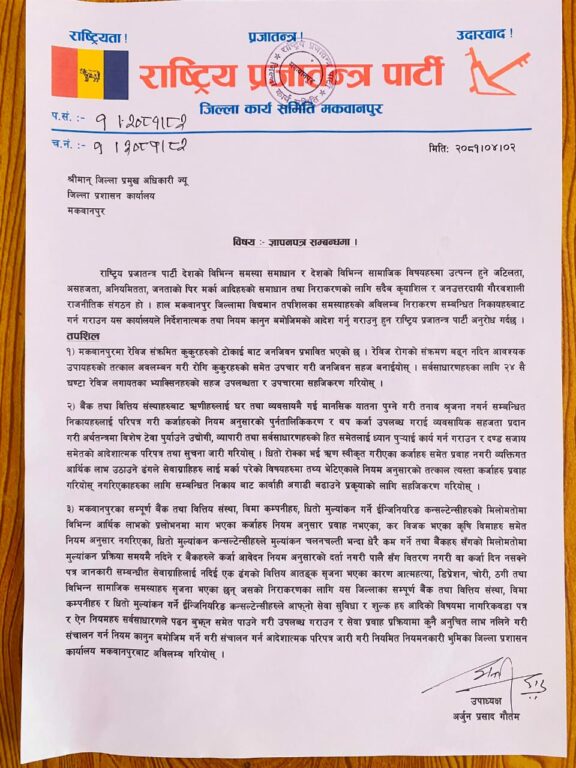 राष्ट्रियता !
प्रजातन्त्र !
उदारवाद !
राष्ट्रिय प्रजातन्त्र पार्टी
जिल्ला कार्य समिति मकवानपुर
प.सं. :- १।२०८१।८२
च.नं. :- १।२०८१।८२
मिति: २०८१।०४।०२
श्रीमान् जिल्ला प्रमुख अधिकारी ज्यू
जिल्ला प्रशासन कार्यालय
मकवानपुर
विषय :- ज्ञापनपत्र सम्बन्धमा ।
राष्ट्रिय प्रजातन्त्र पार्टी देशको विभिन्न समस्या समाधान र देशको विभिन्न सामाजिक विषयहरुमा उत्पन्न हुने जटिलता,
असहजता, अनियमितता, जनताको पिर मर्का आदिहरुको समाधान तथा निराकरणको लागि सदैव कृयाशिल र जनउत्तरदायी गौरवशाली
राजनीतिक संगठन हो । हाल मकवानपुर जिल्लामा विद्यमान तपशिलका समस्याहरुको अविलम्ब निराकरण सम्बन्धित निकायहरुबाट
गर्न गराउन यस कार्यालयले निर्देशनात्मक तथा नियम कानुन बमोजिमको आदेश गर्नु गराउनु हुन राष्ट्रिय प्रजातन्त्र पार्टी अनुरोध गर्दछ ।
तपशिल
१) मकवानपुरमा रेविज संक्रमित कुकुरहरुको टोकाई बाट जनजिवन प्रभावित भएको छ । रेविज रोगको संक्रमण बढ्न नदिन आवश्यक
उपायहरुको तत्काल अवलम्बन गरी रोगि कुकुरहरुको समेत उपचार गरी जनजिवन सहज बनाईयोस् । सर्वसाधारणहरुका लागि २४ सै
घण्टा रेविज लगायतका भ्याक्सिनहरुको सहज उपलब्धता र उपचारमा सहजिकरण गरियोस् ।
२) बैंक तथा वित्तिय संस्थाहरुबाट ऋणीहरुलाई घर तथा व्यवसायमै गई मानसिक यातना पुग्ने गरी तनाव श्रृजना नगर्न सम्बन्धित
निकायहरुलाई परिपत्र गरी कर्जाहरुको नियम अनुसारको पुर्नतालिकिकरण र थप कर्जा उपलब्ध गराई व्यवसायिक सहजता प्रदान
गरी अर्थतन्त्रमा विशेष टेवा पुर्याउने उद्योगी, व्यापारी तथा सर्वसाधारणहरुको हित समेतलाई ध्यान पुर्‍याई कार्य गर्न गराउन र दण्ड सजाय
समेतको आदेशात्मक परिपत्र तथा सुचना जारी गरियोस् । धितो रोक्का भई ऋण स्वीकृत गरीएका कर्जाहरु समेत प्रवाह नगरी व्यक्तिगत
आर्थिक लाभ उठाउने ढंगले सेवाग्राहिहरु लाई मर्का परेको विषयहरुमा तथ्य भेटिएकाले नियम अनुसारको तत्काल त्यस्ता कर्जाहरु प्रवाह
गरियोस् नगरिएकाहरुका लागि सम्बन्धित निकाय बाट कार्वाही अगाडी बढाउने प्रकृयाको लागि सहजिकरण गरियोस् ।
३) मकवानपुरका सम्पूर्ण बैंक तथा वित्तिय संस्था, विमा कम्पनीहरु, धितो मुल्यांकन गर्ने ईन्जिनियरिङ कन्सल्टेन्सीहरुको मिलोमतोमा
विभिन्न आर्थिक लाभको प्रलोभनमा माग भएका कर्जाहरु नियम अनुसार प्रवाह नभएका, कर विजक भएका कृषि विमाहरु समेत
नियम अनुसार नगरिएका, धितो मुल्यांकन कन्सल्टेन्सीहरुले मुल्यांकन चलनचल्ती भन्दा धेरै कम गर्ने तथा बैंकहरु सँगको मिलोमतोमा
मुल्यांकन प्रक्रिया समयमै नदिने र बैंकहरुले कर्जा आवेदन नियम अनुसारको दर्ता नगरी पालै सँग वितरण नगरी वा कर्जा दिन नसक्ने
पत्र जानकारी सम्बन्धीत सेवाग्राहिलाई नदिई एक ढंगको वित्तिय आतङ्क सृजना भएका कारण आत्महत्या, डिप्रेशन, चोरी, ठगी तथा
विभिन्न सामाजिक समस्याहरु सृजना भएका छन् जसको निराकरणका लागि यस जिल्लाका सम्पूर्ण बैंक तथा वित्तिय संस्था, विमा
कम्पनीहरु र धितो मुल्यांकन गर्ने ईन्जिनियरिङ कन्सल्टेन्सीहरुले आफ्नो सेवा सुविधा र शुल्क हरु आदिको विषयमा नागरिकवडा पत्र
र ऐन नियमहरु सर्वसाधारणले पढ्न बुझ्न समेत पाउने गरी उपलब्ध गराउन र सेवा प्रवाह प्रक्रियामा कुनै अनुचित लाभ नलिने गरी
संचालन गर्न नियम कानुन बमोजिम गर्ने गरी संचालन गर्न आदेशात्मक परिपत्र जारी गरी नियमित नियमनकारी भुमिका जिल्ला प्रशासन
कार्यालय मकवानपुरबाट अविलम्ब गरियोस् ।
उपाध्यक्ष
अर्जुन प्रसाद गौतम